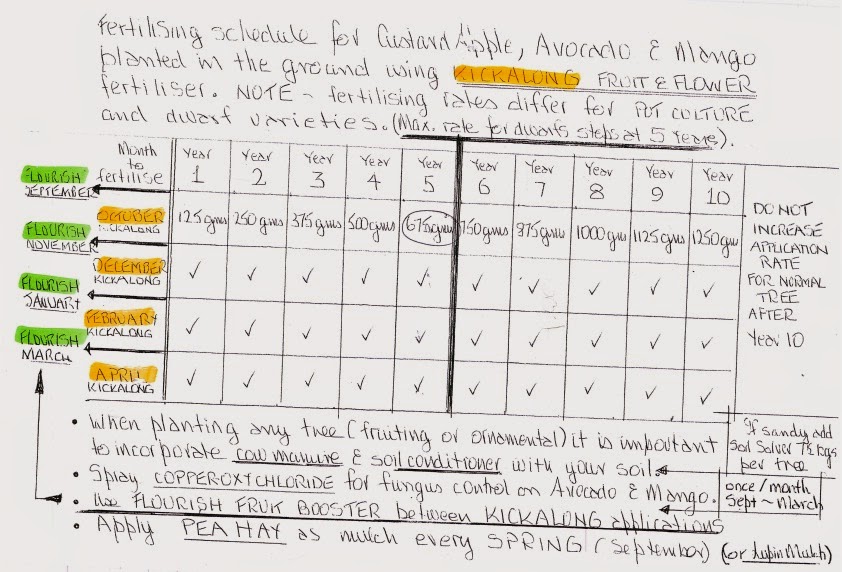 Fertilising schedule for Custard Apple, Avocado & Mango
planted in the ground using KICKALONG FRUIT & FLOWER
fertiliser. NOTE - fertilising rates differ for POT CULTURE
and dwarf varieties. (Max. rate for dwarfs stops at 5 Years).
Month to fertilise Year 1 Year 2 Year 3 Year 4 Year 5 Year 6 Year 7 Year 8 Year 9 Year 10
FLOURISH SEPTEMBER
OCTOBER KICKALONG 125gms 250gms 375gms 500gms 675gms 750gms 875gms 1000gms 1125gms 1250gms
FLOURISH NOVEMBER
DECEMBER KICKALONG ✓ ✓ ✓ ✓ ✓ ✓ ✓ ✓ ✓ ✓
FLOURISH JANUARY
FEBRUARY KICKALONG ✓ ✓ ✓ ✓ ✓ ✓ ✓ ✓ ✓ ✓
FLOURISH MARCH
APRIL KICKALONG ✓ ✓ ✓ ✓ ✓ ✓ ✓ ✓ ✓ ✓
DO NOT
INCREASE
APPLICATION
RATE
FOR NORMAL
TREE
AFTER
Year 10
• When planting any tree (fruiting or ornamental) it is important
to incorporate cow manure & soil conditioner with your soil.
If sandy add
Soil Solver 7½kgs
per tree
• Spray COPPEROXYCHLORIDE for fungus control on Avocado & Mango.
• Use FLOURISH FRUIT BOOSTER between KICKALONG applications
once/month
Sept ~ March
• Apply PEA HAY as mulch every SPRING (September) (or Lupin Mulch)